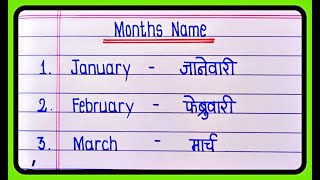 Months Name
1. January - जानेवारी
2. February - फेब्रुवारी
3. March - मार्च